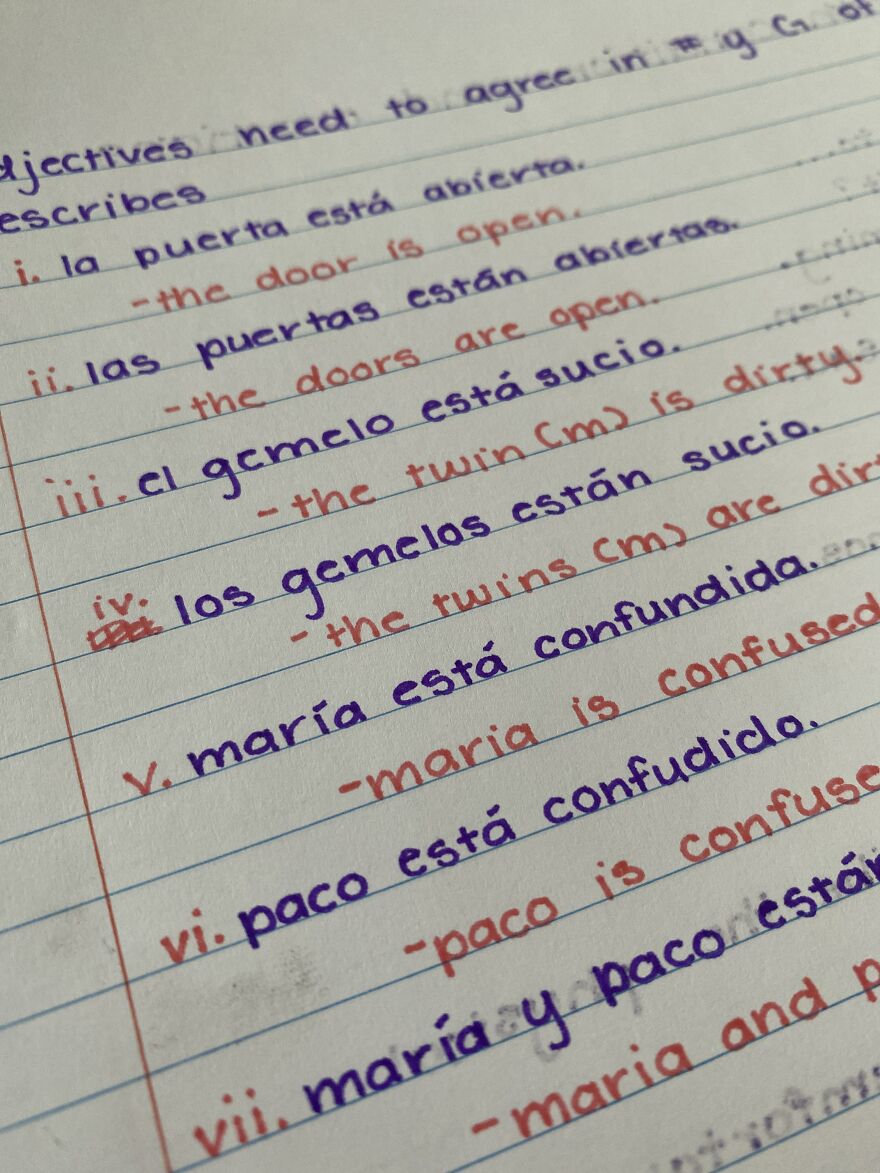 djectives need to agree in # y G. of
escribes
i. la puerta está abierta.
-the door is open.
ii. las puertas están abiertas.
-the doors are open.
iii. el gemelo está sucio.
-the twin (m) is dirty.
iv. los gemelos están sucio.
-the twins (m) are dirt
v. maría está confundida.
-maria is confused
vi. paco está confudido.
-paco is confuse
vii. maría y paco están
-maria and p